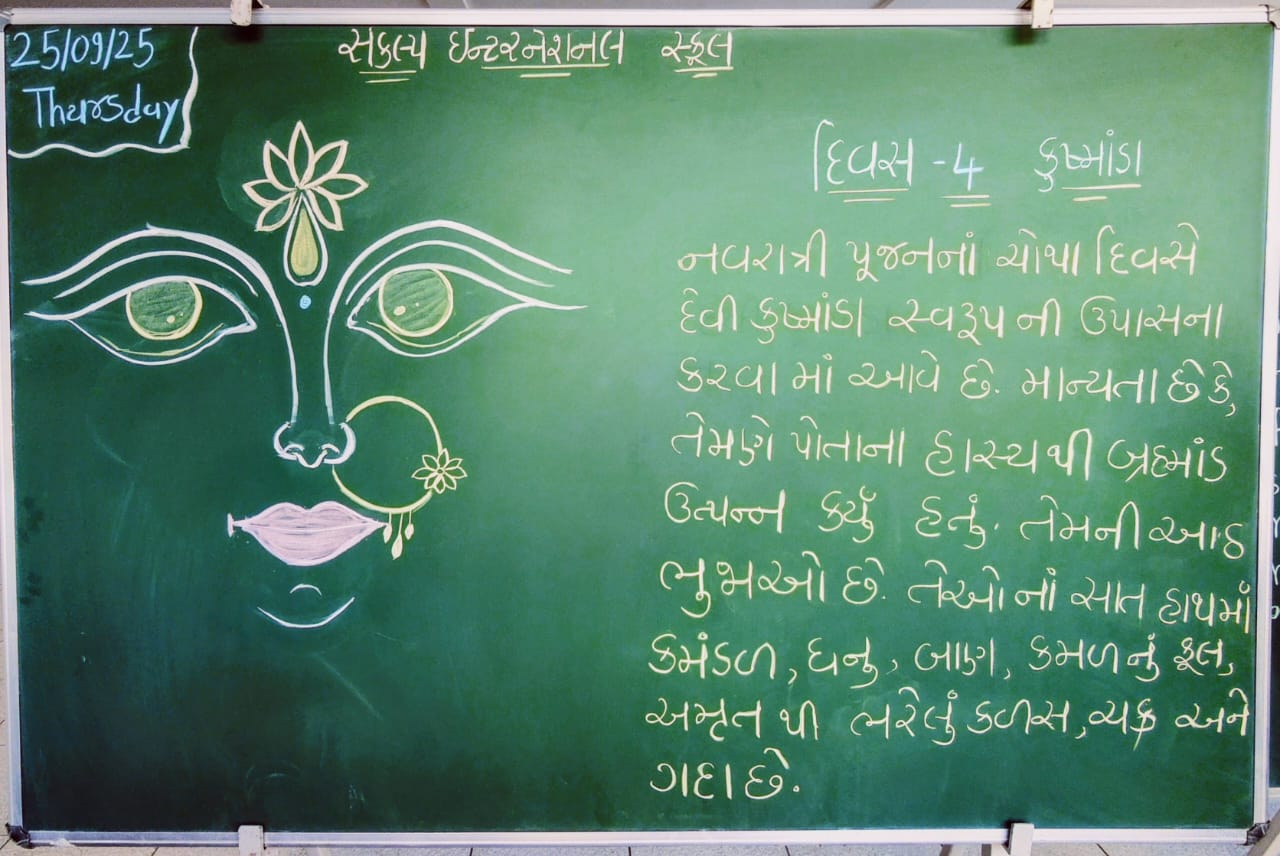 25/09/25
Thursday
સંકલ્પ ઇન્ટરનેશનલ સ્કૂલ
દિવસ - 4 કુષ્માંડા
નવરાત્રી પૂજનનાં ચોથા દિવસે
દેવી કુષ્માંડા સ્વરૂપ ની ઉપાસના
કરવા માં આવે છે. માન્યતા છે કે,
તેમણે પોતાના હાસ્ય થી બ્રહ્માંડ
ઉત્પન્ન કર્યું હતું. તેમની આઠ
ભુજાઓ છે. તેઓનાં સાત હાથમાં
કમંડળ, ધનુ, બાણ, કમળ નું ફૂલ,
અમૃત થી ભરેલું કળસ, ચક્ર અને
ગદા છે.